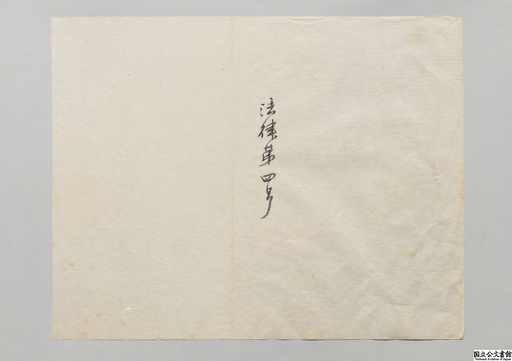 法律第四号
国立公文書館
National Archives of Japan